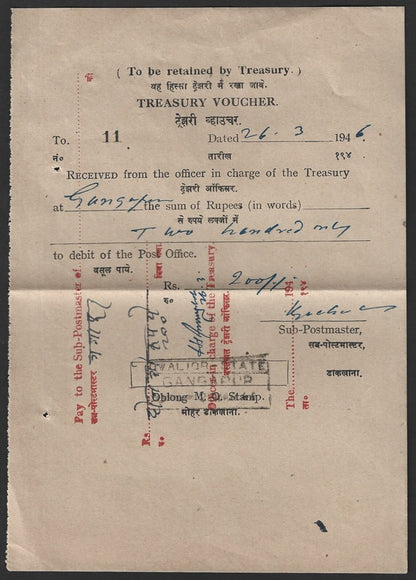 ( To be retained by Treasury. )
यह हिस्सा ट्रेझरी में रखा जावे.
TREASURY VOUCHER.
ट्रेझरी व्हाउचर.
To. 11 Dated 26.3 1946
नं० तारीख १९४
RECEIVED from the officer in charge of the Treasury
ट्रेझरी ऑफिसर.
at Gangapur the sum of Rupees (in words)
से रुपये लफ्जों में
Two hundred only
to debit of the Post Office.
वसूल पाये.
Rs. 200/-
रु०
Sub-Postmaster,
सब-पोस्टमास्टर,
डाकखाना.
GWALIOR STATE
GANGAPUR
Oblong M. O. Stamp.
मोहर डाकखाना.
Pay to the Sub-Postmaster of
सब-पोस्टमास्टर
Rs.
रु०
२००
Officer in charge of the Treasury
ट्रेझरी ऑफिसर.
The 194
ता० १९४